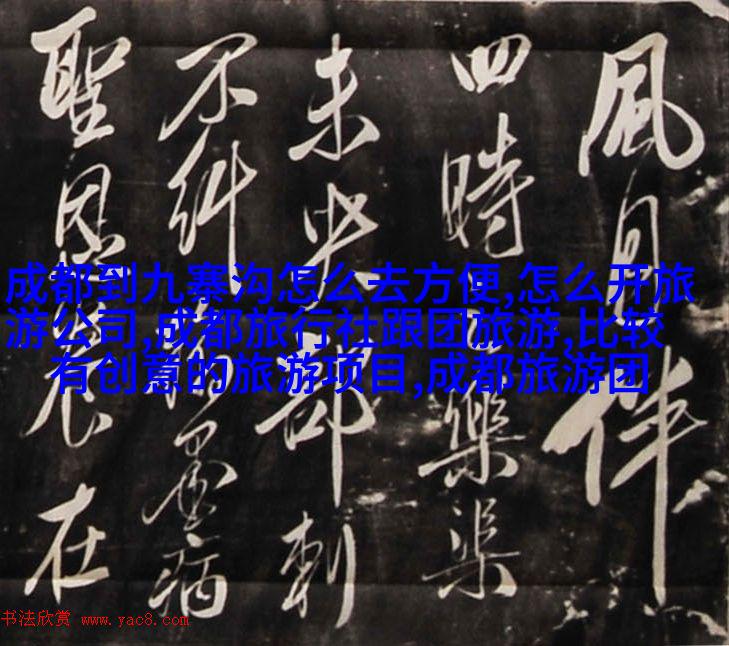 風月伴
四時樂渠
未央部刺
不糾墨病
聖恩在
成都到九寨沟怎么去方便,怎么开旅
游公司,成都旅行社跟团旅游,比较
有创意的旅游项目,成都旅游团
书法欣赏 www.yac8.com